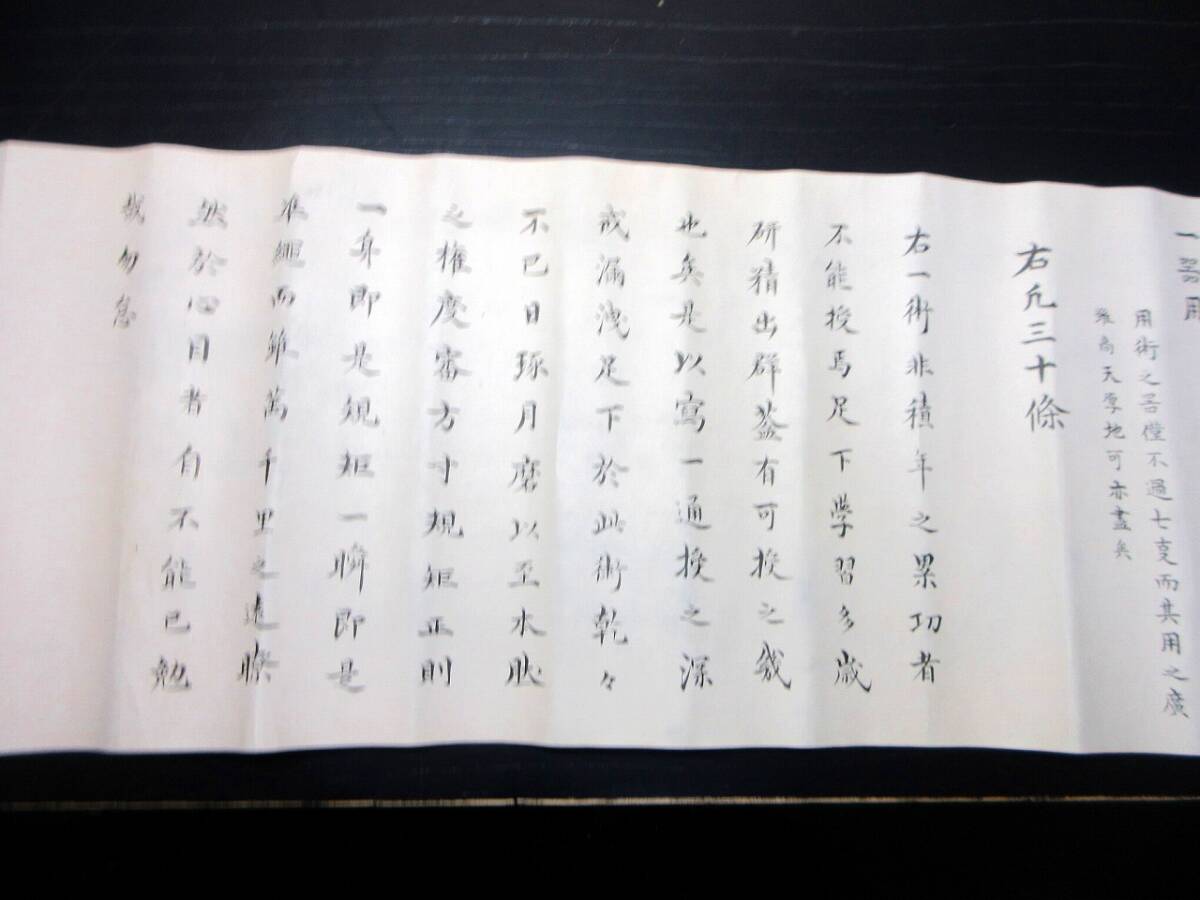 一器用
用術之否儅不過七変而其用之廣
雖高天厚地可亦盡矣
右凡三十條
右一術非積年之累功者
不能授焉足下學習多歳
研精出群益有可授之哉
也矣是以寫一通授之深
戒漏洩足下於此術乾々
不已日琢月磨以至木耿
之權度審方寸規矩正則
一身即是規矩一瞬即是
準繩而雖萬千里之遠瞭
然於心目者自不能已勉
哉勿怠